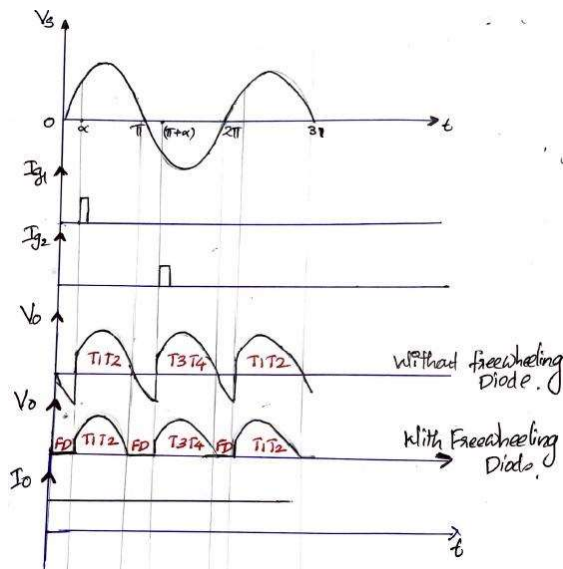 Vs
0 α π (π+α) 2π 3π t
Ig1
Ig2
Vo
T1T2 T3T4 T1T2 Without freewheeling
Diode.
Vo
FD T1T2 FD T3T4 FD T1T2 With Freewheeling
Diode.
Io
t